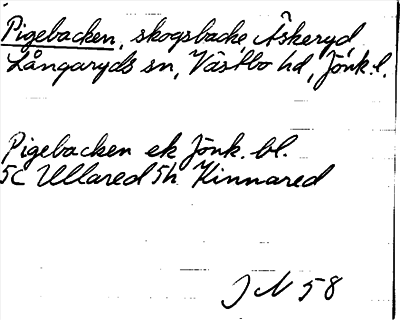 Pigebacken, skogsbacke, Åskeryd,
Långaryds sn, Västbo hd, Jönk. l.
Pigebacken ek Jönk. bl.
5C Ullared 5h Kinnared
J N 58